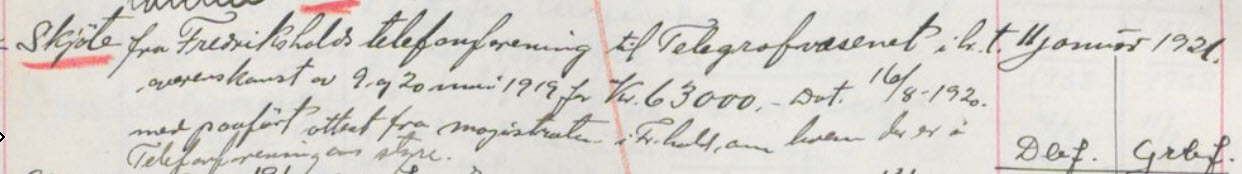 Skjöte fra Fredrikshalds telefonforening til Telegrafvæsenet i h. t. 11 januar 1921.
overenskomst av 9. og 20 mai 1919 for Kr. 63000.- Dat. 16/8-1920.
med paafört attest fra magistraten i Fr.hald, om hvem der er i
Telefonforeningens styre.
Dbf. Grbf.